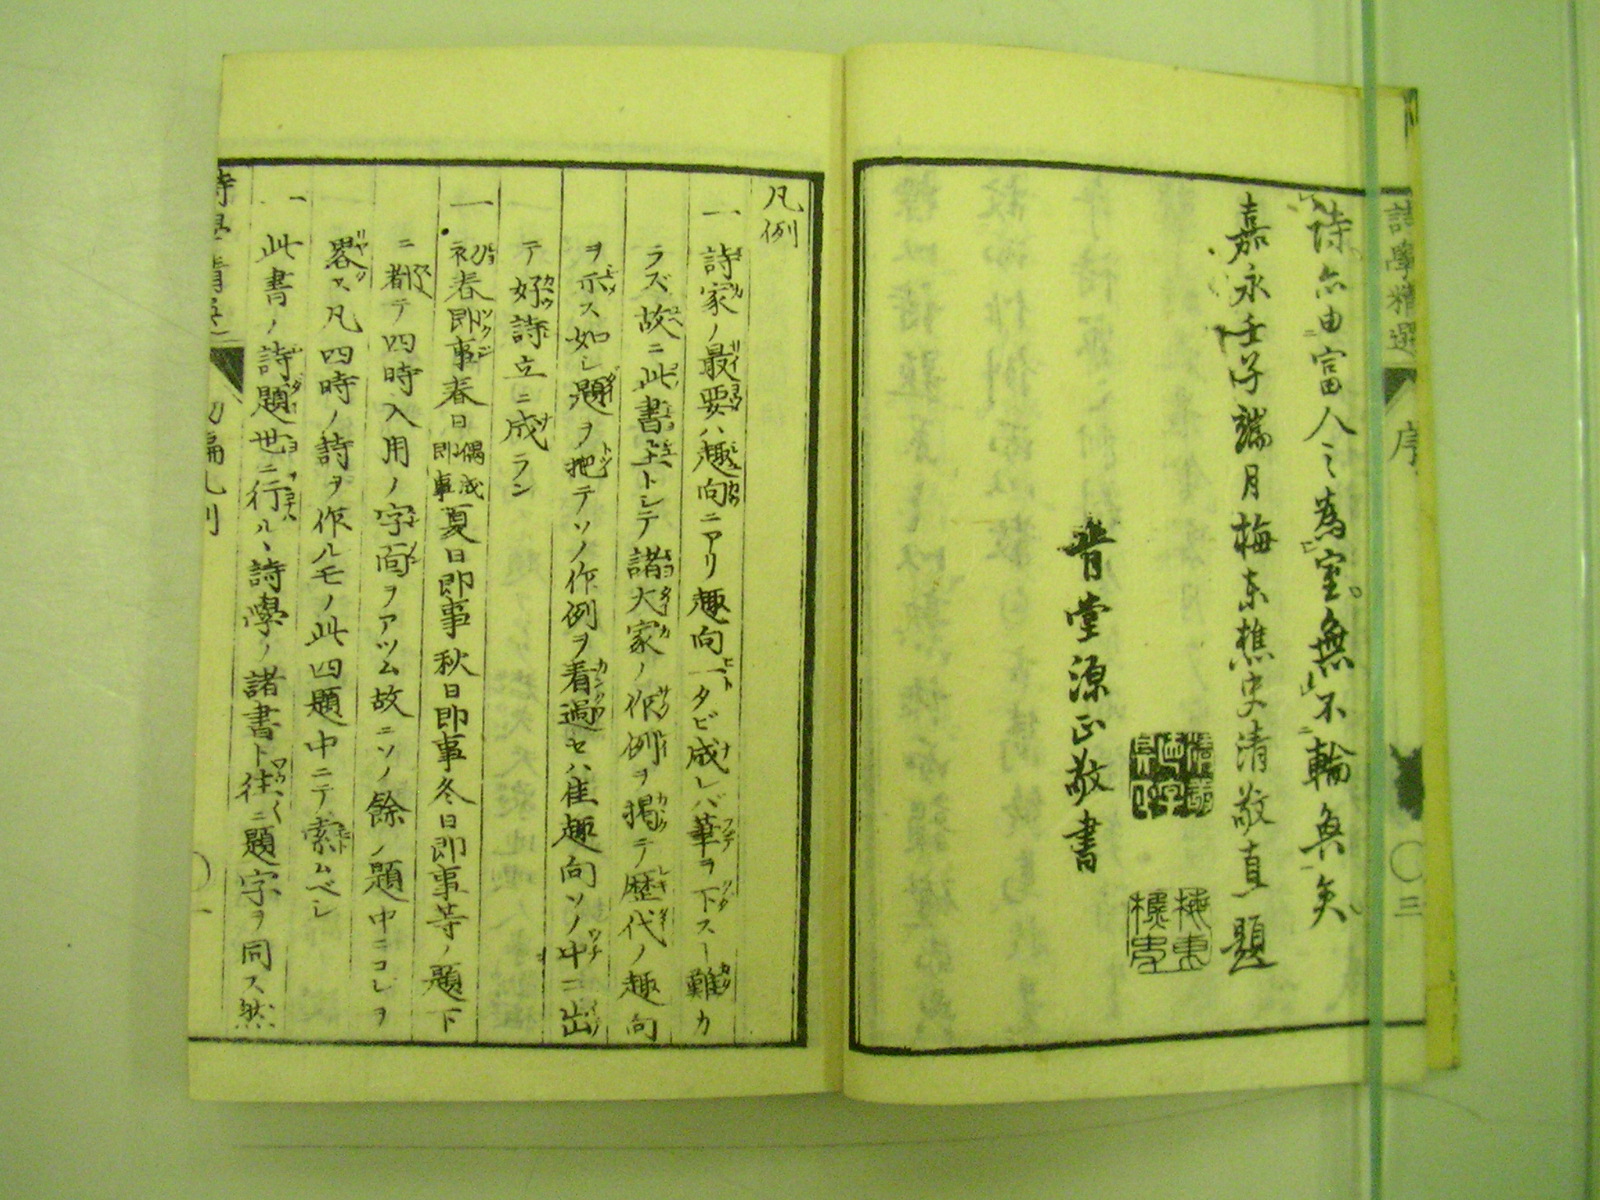 詩學精選
序
三
詩亦由富人之為室無不輪奐矣
嘉永壬子端月梅東樵史清敬直題
青堂源正敬書
凡例
一詩家ノ最要ハ趣向ニアリ趣向一タビ成レバ筆ヲ下スヿ難カ
ラズ故ニ此書主トシテ諸大家ノ作例ヲ掲テ歴代ノ趣向
ヲ示ス如シ題ヲ把テソノ作例ヲ看過セハ佳趣向ソノ中ニ出
テ好詩立ニ成ラン
一初春即事春日偶成即事夏日即事秋日即事冬日即事等ノ題下
ニ都テ四時入用ノ字面ヲアツム故ニソノ餘ノ題中ニコレヲ
畧ス凡四時ノ詩ヲ作ルモノ此四題中ニテ索ムベシ
一此書ノ詩題世ニ行ルヽ詩學ノ諸書ト往々ニ題字ヲ同ス然